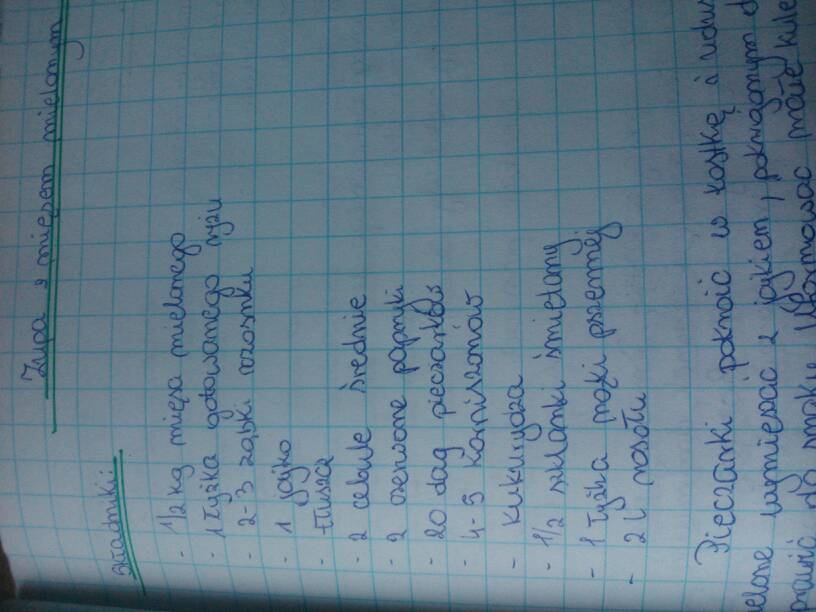 Zupa z mięsem mielonym
Składniki:
- 1/2 kg mięsa mielonego
- 1 łyżka gotowanego ryżu
- 2-3 ząbki czosnku
- 1 jajko
- tłuszcz
- 2 cebule średnie
- 2 czerwone papryki
- 20 dag pieczarków
- 4-5 korniszonów
- kukurydza
- 1/2 szklanki śmietany
- 1 łyżka mąki pszennej
- 2 l rosołu
Pieczarki pokroić w kostkę i udus
elone wymieszać z jajkiem, pokrojonym
prawić do smaku. Uformować małe kule